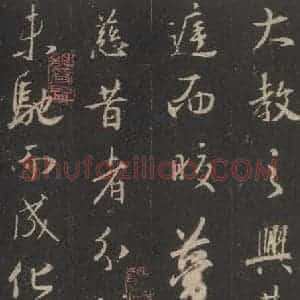 大教之興
庭而皎夢
慈昔者分
未馳而成化
Shufaziliao.com